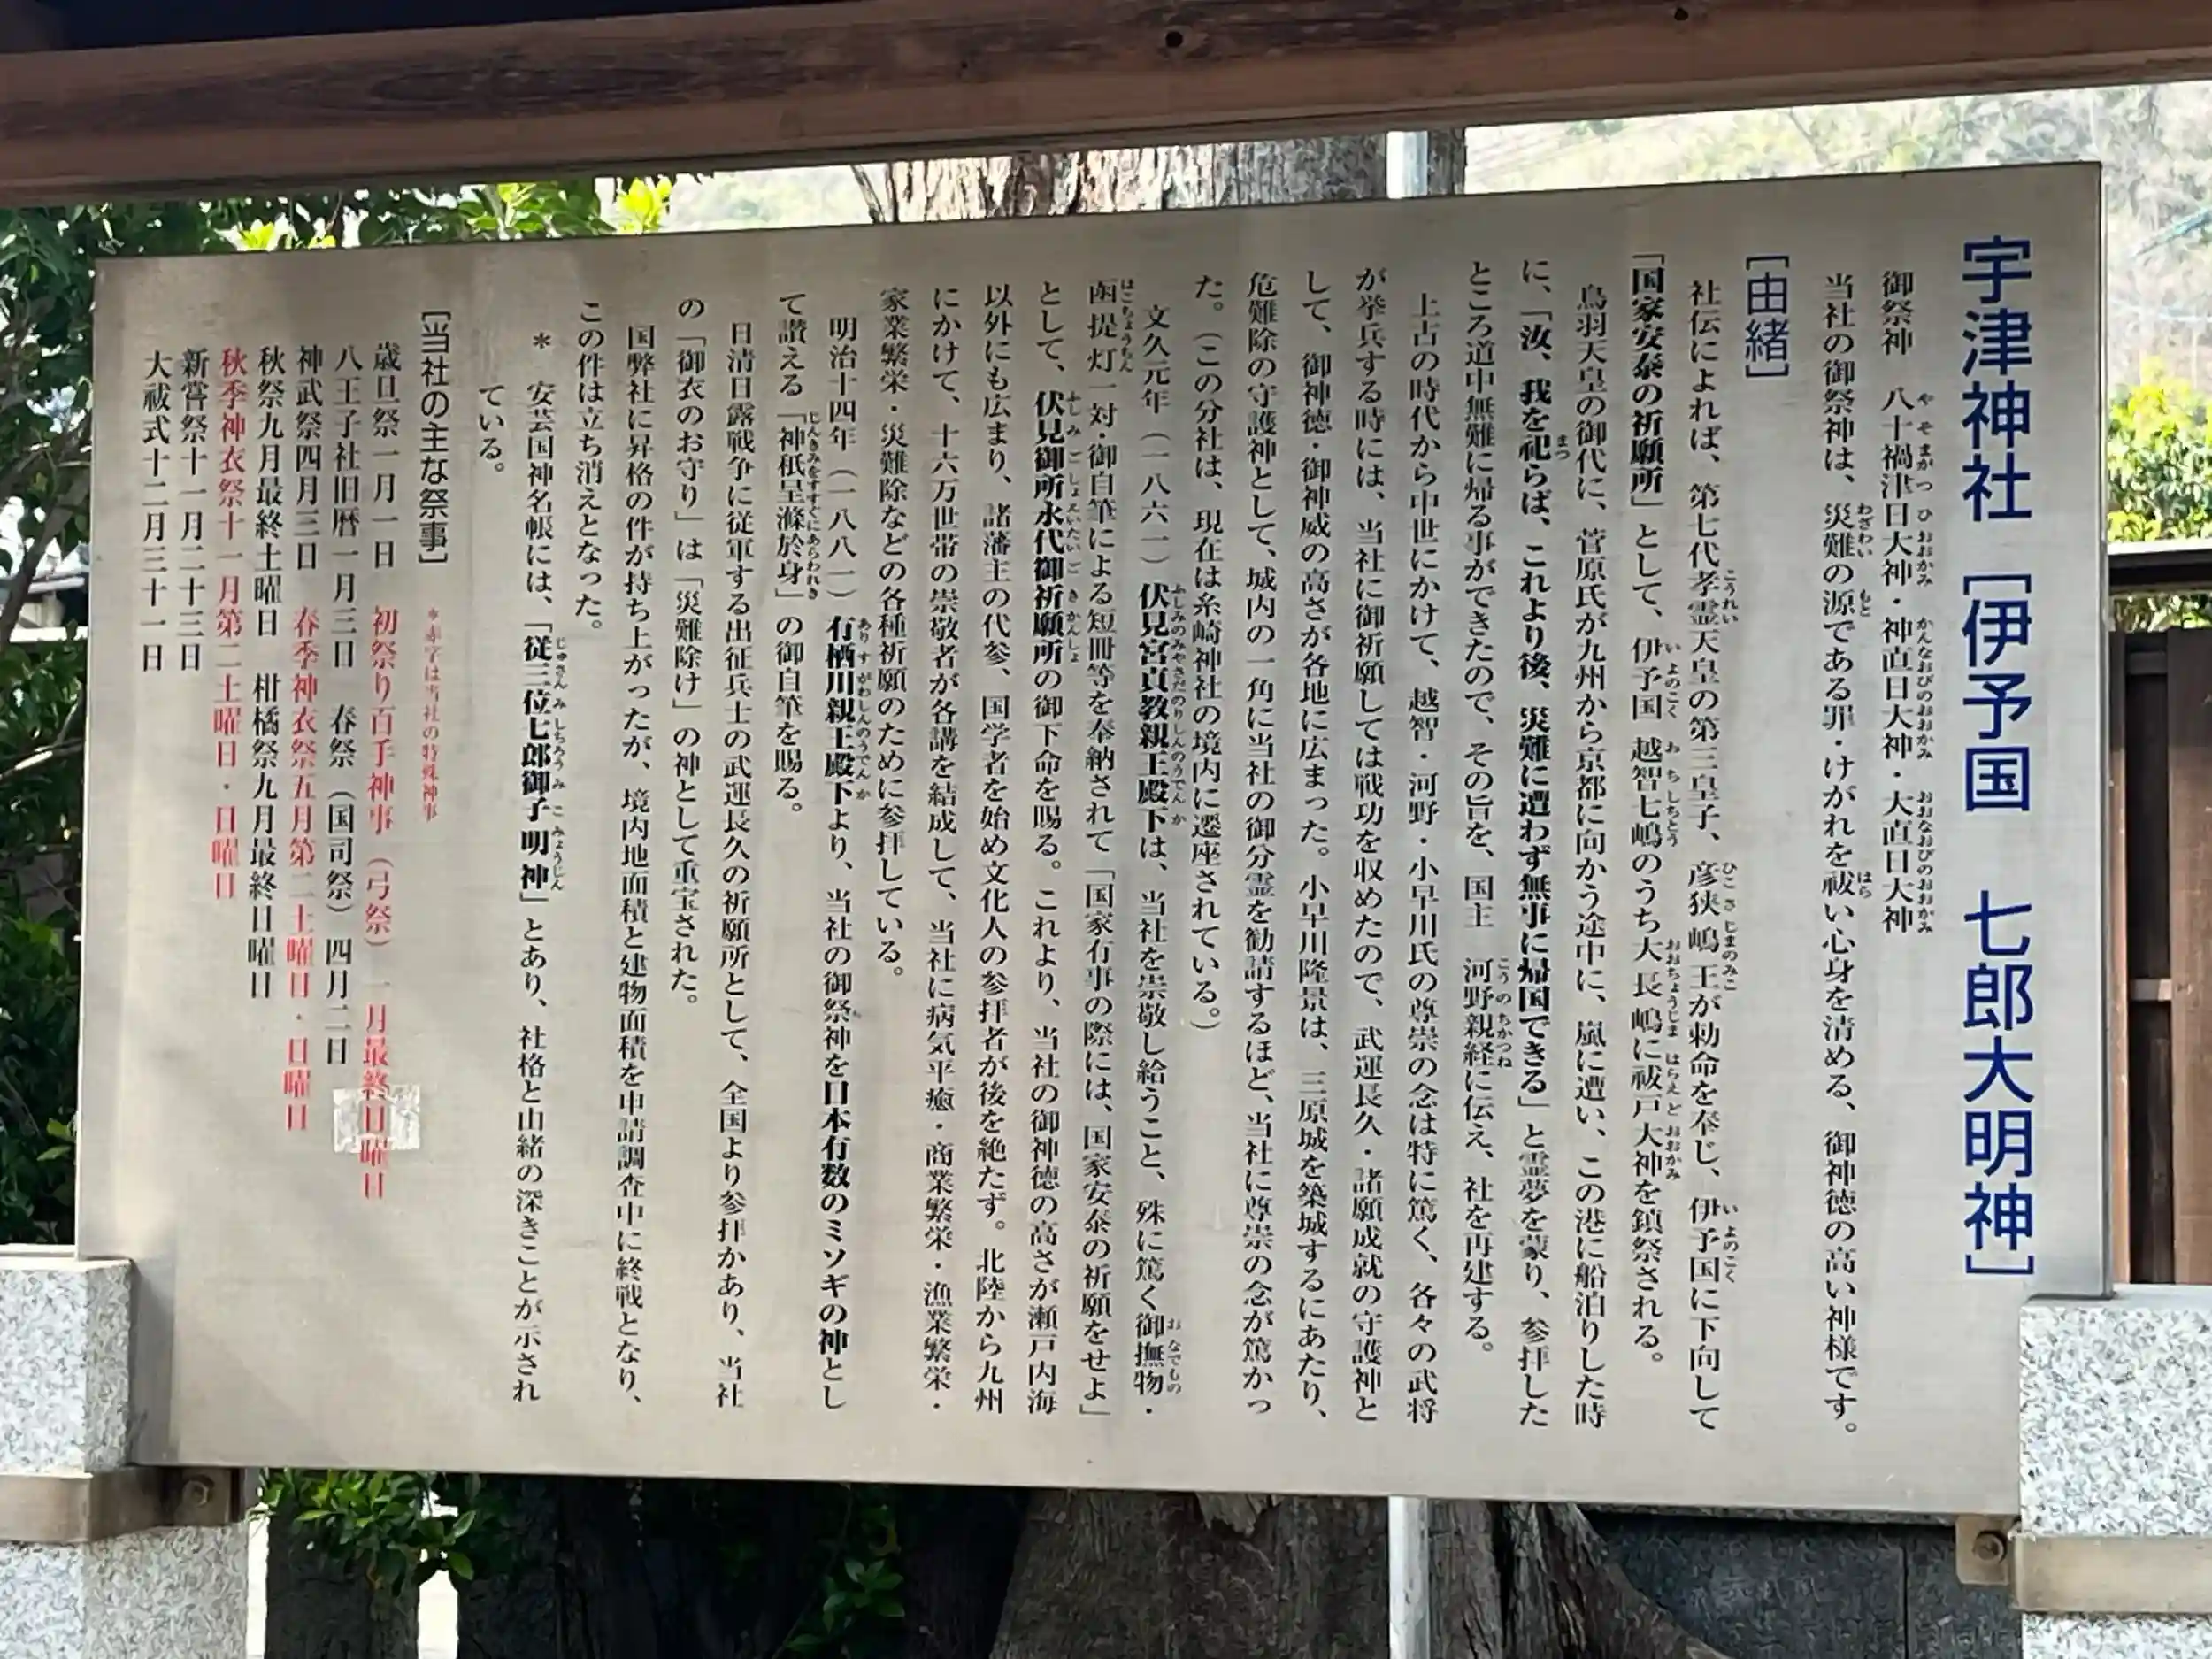 宇津神社 [伊予国 七郎大明神]
御祭神 八十禍津日大神・神直日大神・大直日大神
当社の御祭神は、災難の源である罪・けがれを祓い心身を清める、御神徳の高い神様です。
[由緒]
社伝によれば、第七代孝霊天皇の第三皇子、彦狭嶋王が勅命を奉じ、伊予国に下向して
「国家安泰の祈願所」として、伊予国 越智七嶋のうち大長嶋に祓戸大神を鎮祭される。
鳥羽天皇の御代に、菅原氏が九州から京都に向かう途中に、嵐に遭い、この港に船泊りした時
に、「汝、我を祀らば、これより後、災難に遭わず無事に帰国できる」と霊夢を蒙り、参拝した
ところ道中無難に帰る事ができたので、その旨を、国主 河野親経に伝え、社を再建する。
上古の時代から中世にかけて、越智・河野・小早川氏の尊崇の念は特に篤く、各々の武将
が挙兵する時には、当社に御祈願しては戦功を収めたので、武運長久・諸願成就の守護神と
して、御神徳・御神威の高さが各地に広まった。小早川隆景は、三原城を築城するにあたり、
危難除の守護神として、城内の一角に当社の御分霊を勧請するほど、当社に尊崇の念が篤かっ
た。（この分社は、現在は糸崎神社の境内に遷座されている。）
文久元年（一八六一）伏見宮貞教親王殿下は、当社を崇敬し給うこと、殊に篤く御撫物・
函提灯一対・御自筆による短冊等を奉納されて「国家有事の際には、国家安泰の祈願をせよ」
として、伏見御所永代御祈願所の御下命を賜る。これより、当社の御神徳の高さが瀬戸内海
以外にも広まり、諸藩主の代参、国学者を始め文化人の参拝者が後を絶たず。北陸から九州
にかけて、十六万世帯の崇敬者が各講を結成して、当社に病気平癒・商業繁栄・漁業繁栄・
家業繁栄・災難除などの各種祈願のために参拝している。
明治十四年（一八八一）有栖川親王殿下より、当社の御祭神を日本有数のミソギの神とし
て讃える「神祇呈滌於身」の御自筆を賜る。
日清日露戦争に従軍する出征兵士の武運長久の祈願所として、全国より参拝かあり、当社
の「御衣のお守り」は「災難除け」の神として重宝された。
国弊社に昇格の件が持ち上がったが、境内地面積と建物面積を申請調査中に終戦となり、
この件は立ち消えとなった。
＊ 安芸国神名帳には、「従三位七郎御子明神」とあり、社格と由緒の深きことが示され
ている。
[当社の主な祭事] ＊赤字は当社の特殊神事
歳旦祭一月一日 初祭り百手神事（弓祭）一月最終日曜日
八王子社旧暦一月三日 春祭（国司祭）四月二日
神武祭四月三日 春季神衣祭五月第二土曜日・日曜日
秋祭九月最終土曜日 柑橘祭九月最終日曜日
秋季神衣祭十一月第二土曜日・日曜日
新嘗祭十一月二十三日
大祓式十二月三十一日